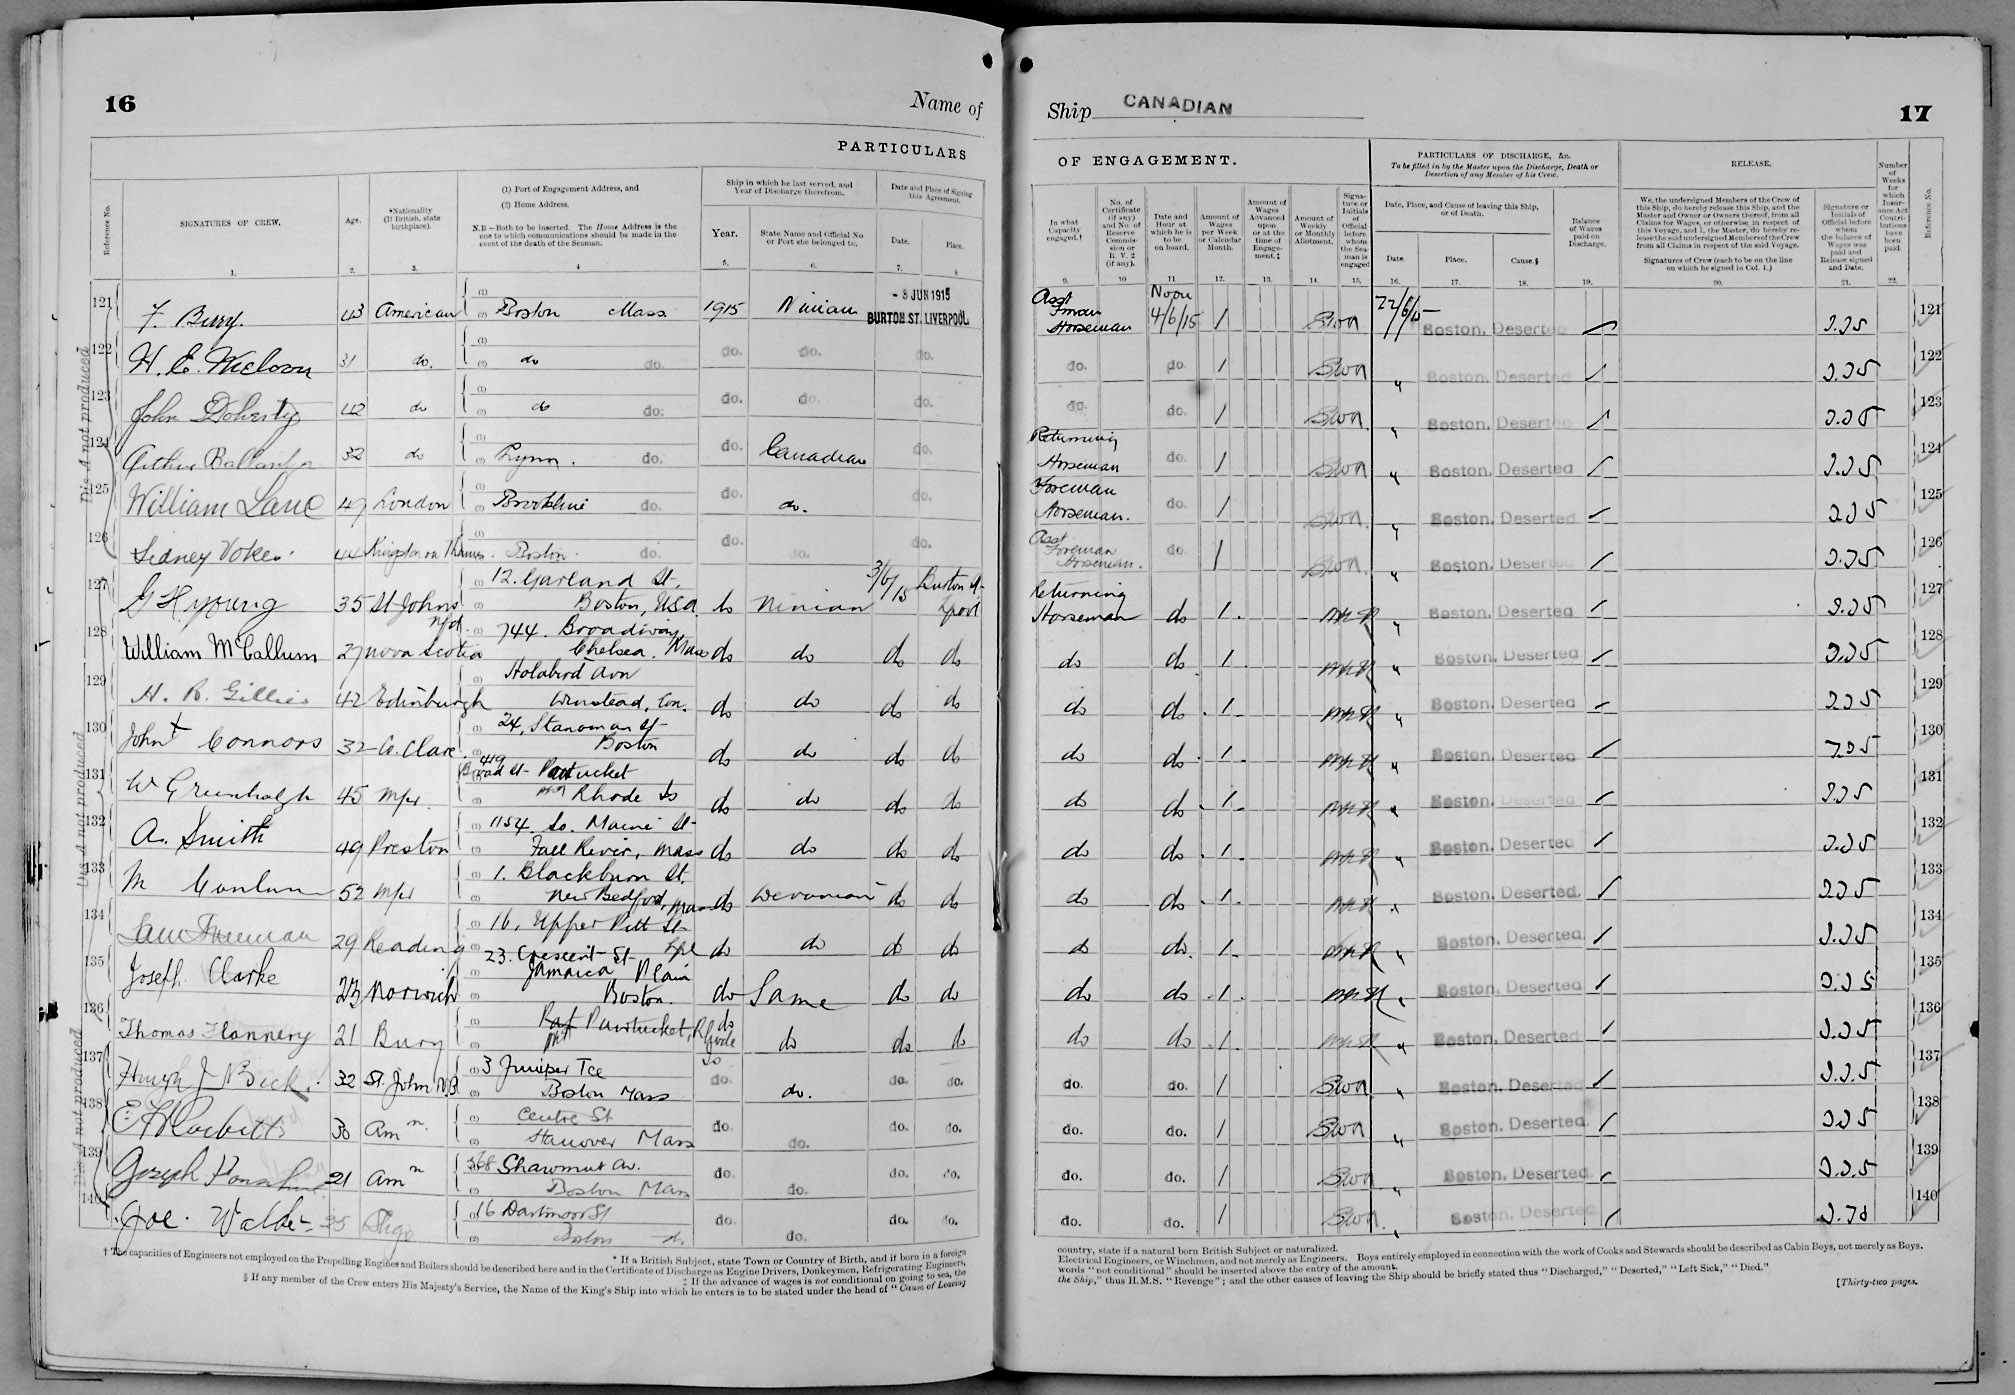 16
Name of
PARTICULARS
Reference No.
SIGNATURES OF CREW.
Age.
*Nationality
(If British, state
birthplace).
(1) Port of Engagement Address, and
(2) Home Address.
N.B—Both to be inserted. The Home Address is the
one to which communications should be made in the
event of the death of the Seaman.
Ship in which he last served, and
Year of Discharge therefrom.
Year.
State Name and Official No.
or Port she belonged to.
Date and Place of Signing
this Agreement.
Date.
Place.
1. 2. 3. 4 5. 6. 7. 8
121 F. Bury. 43 American (1) (2) Boston Mass 1915 Ninian - 3 JUN 1915 BURTON ST. LIVERPOOL
122 H. E. 31 do. (1) (2) do do. do. do. do.
123 John Doherty 42 do (1) (2) do do. do. do. do.
124 Arthur 32 do (1) (2) Lynn. do. do. Canadian do.
125 William Lane 49 London (1) (2) Brookline do. do. do. do.
126 Sidney Vokes. 44 Kingston on Thames. (1) Boston. do. do. do. do.
127 G H Young 35 St Johns Nfd. (1) 12. Garland St.
(2) Boston, USA do Ninian 3/6/15 Burton St Lpool
128 William McCallum 27 Nova Scotia (1) 744. Broadway
Chelsea. Mass do do do do
129 H. R. Gillies 42 Edinburgh (1) Holabird Avn
Winstead, Con. do do do do
130 John Connors 32 Co. Clare (1) 24, St
Boston do do do do
131 W Greenhalgh 45 Mchr. 419 Broad St- Pawtucket
(2) Rhode Is do do do do
132 A. Smith 49 Preston (1) 1154. So. Maine St-
(2) Fall River, Mass do do do do
133 M 52 Mchr (1) 1. Blackburn St.
(2) New Bedford, Mass do Devonian do do
134 Sam Freeman 29 Reading (1) 16, Upper Pitt St
(2) Lpl do do do do
135 Joseph Clarke 23 Norwich 23. Crescent St
(1) Jamaica Plain
(2) Boston. do Same do do
136 Thomas Flannery 21 Bury (1) Pawtucket, Rhode Is
(2) do do do do
137 Hugh J Beck. 32 St. John N.B (1) 3 Juniper Tce
(2) Boston Mass do. do. do. do.
138 E. 30 Amn. (1) Centre St
(2) Hanover Mass do. do. do. do.
139 Joseph 21 Amn 368 Shawmut Av.
(2) Boston Mass do. do. do. do.
140 Joe. 35 Sligo (1) 16 Dartmoor St
(2) Boston do. do. do. do. do.
Dis. A not produced
Dis. A not produced
Dis. A not produced
† The capacities of Engineers not employed on the Propelling Engines and Boilers should be described here and in the Certificate of Discharge as Engine Drivers, Donkeymen, Refrigerating Engineers,
* If a British Subject, state Town or Country of Birth, and if born in a foreign
‡ If the advance of wages is not conditional on going to sea, the
§ If any member of the Crew enters His Majesty's Service, the Name of the King's Ship into which he enters is to be stated under the head of "Cause of Leaving
Ship CANADIAN
17
OF ENGAGEMENT.
PARTICULARS OF DISCHARGE, &c.
To be filled in by the Master upon the Discharge, Death or
Desertion of any Member of his Crew.
RELEASE.
In what
Capacity
engaged.†
No. of
Certificate
(if any)
and No. of
Reserve
Commis-
sion or
R. V. 2
(if any).
Date and
Hour at
which he is
to be
on board.
Amount of
Wages
per Week
or Calendar
Month.
Amount of
Wages
Advanced
upon
or at the
time of
Engage-
ment.‡
Amount of
Weekly
or Monthly
Allotment.
Signa-
ture or
Initials
of
Official
before
whom
the Sea-
man is
engaged
Date, Place, and Cause of leaving this Ship,
or of Death.
Date.
Place.
Cause.§
Balance
of Wages
paid on
Discharge.
We, the undersigned Members of the Crew of
this Ship, do hereby release this Ship, and the
Master and Owner or Owners thereof, from all
Claims for Wages, or otherwise, in respect of
this Voyage, and I, the Master, do hereby re-
lease the said undersigned Members of the Crew
from all Claims in respect of the said Voyage.
Signatures of Crew (each to be on the line
on which he signed in Col. 1.)
Signature or
Initials of
Official before
whom
the balance of
Wages was
paid and
Release signed
and Date.
Number
of
Weeks
for
which
Insur-
ance Act
Contri-
butions
have
been
paid.
Reference No.
9. 10 11 12. 13. 14. 15. 16. 17. 18. 19. 20. 21. 22.
Asst Fman Horseman Noon 4/6/15 1 22/6/15 Boston. Deserted 121
do. do. 1 " Boston. Deserted 122
do. do. 1 " Boston. Deserted 123
Returning Horseman do. 1 " Boston. Deserted 124
Foreman Horseman. do. 1 " Boston. Deserted 125
Asst Foreman Horseman. do. 1 " Boston. Deserted 126
Returning Horseman do 1. " Boston. Deserted 127
do do 1. " Boston. Deserted 128
do do 1. " Boston. Deserted 129
do do 1. " Boston. Deserted 130
do do 1. " Boston. Deserted 131
do do 1. " Boston. Deserted 132
do do 1. " Boston. Deserted. 133
do do. 1. " Boston. Deserted 134
do do 1. " Boston. Deserted 135
do do 1. " Boston. Deserted 136
do. do. 1 " Boston. Deserted 137
do. do. 1 " Boston. Deserted. 138
do. do. 1 " Boston. Deserted 139
do. do. 1 " Boston. Deserted 140
country, state if a natural born British Subject or naturalized.
Electrical Engineers, or Winchmen, and not merely as Engineers. Boys entirely employed in connection with the work of Cooks and Stewards should be described as Cabin Boys, not merely as Boys.
words "not conditional" should be inserted above the entry of the amount.
the Ship," thus H.M.S. "Revenge"; and the other causes of leaving the Ship should be briefly stated thus "Discharged," "Deserted," "Left Sick," "Died."
[Thirty-two pages.